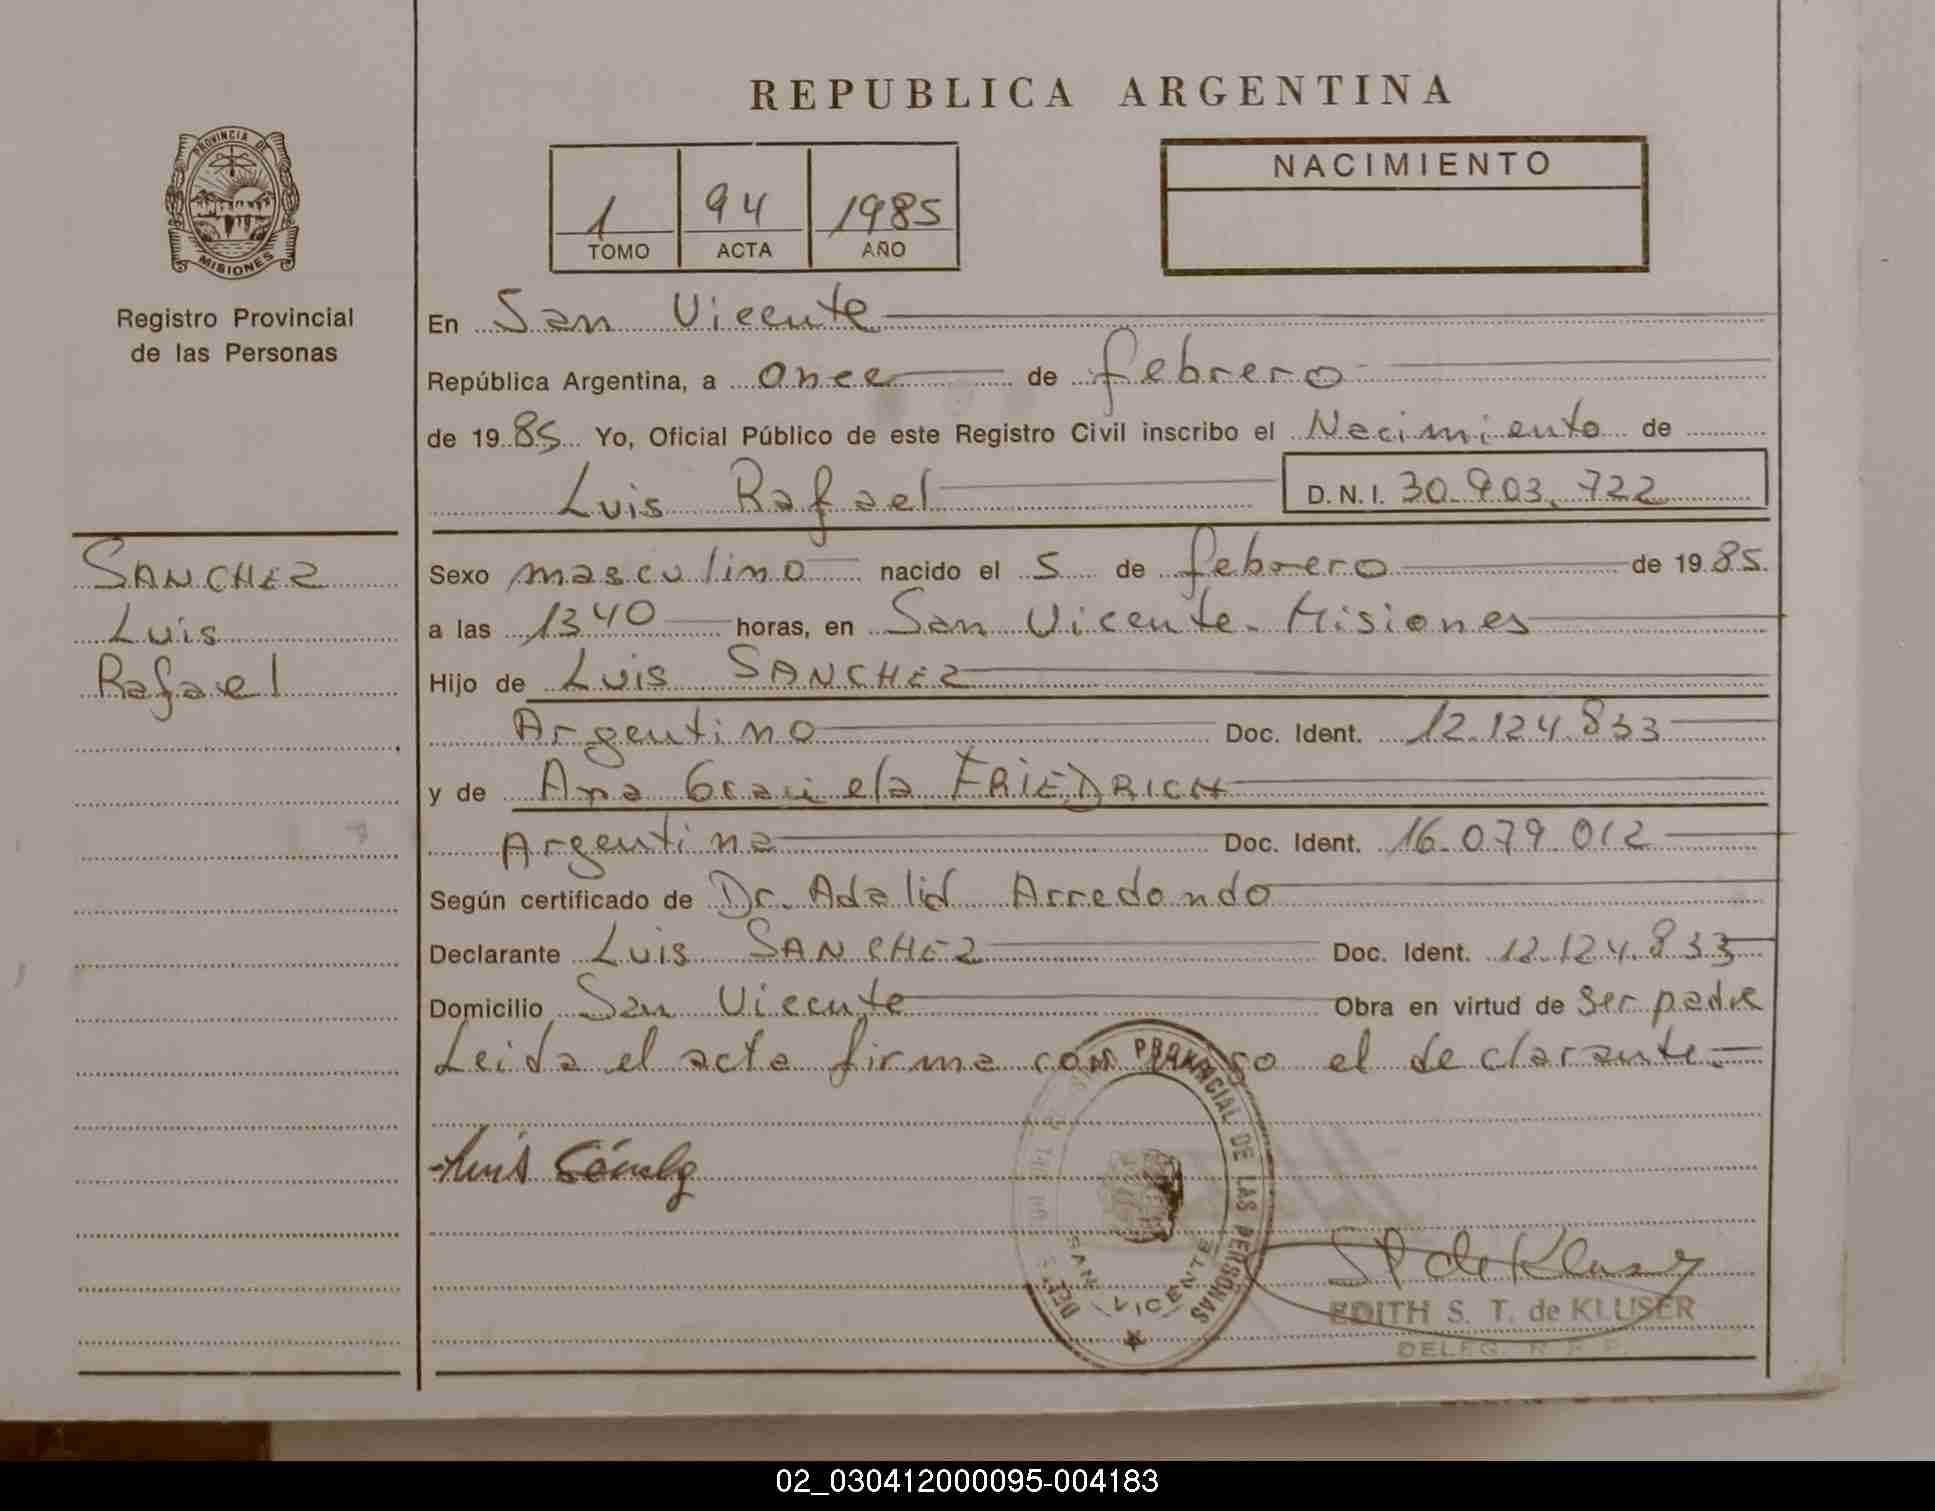 REPUBLICA ARGENTINA
PROVINCIA DE
MISIONES
Registro Provincial
de las Personas
1 94 1985
TOMO ACTA AÑO
NACIMIENTO
En San Vicente
República Argentina, a once de febrero
de 1985 Yo, Oficial Público de este Registro Civil inscribo el Nacimiento de
Luis Rafael D.N.I. 30.903.722
SANCHEZ
Luis
Rafael
Sexo masculino nacido el 5 de febrero de 1985.
a las 1340 horas, en San Vicente - Misiones
Hijo de Luis SANCHEZ
Argentino Doc. Ident. 12.124.833
y de Ana Graciela FRIEDRICH
Argentina Doc. Ident. 16.079.012
Según certificado de Dr. Adalid Arredondo
Declarante Luis SANCHEZ Doc. Ident. 12.124.833
Domicilio San Vicente Obra en virtud de ser padre
Leida el acta firma conmigo el declarante.-
Luis Sánchez
PROVINCIAL DE LAS PERSONAS
SAN VICENTE
St de Kluser
EDITH S. T. de KLUSER
DELEG. R. P. P.
02_030412000095-004183